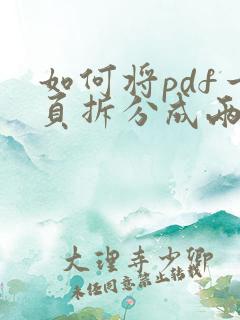 如何将pdf一
页拆分成两
大理寺少卿
未经同意禁止转载